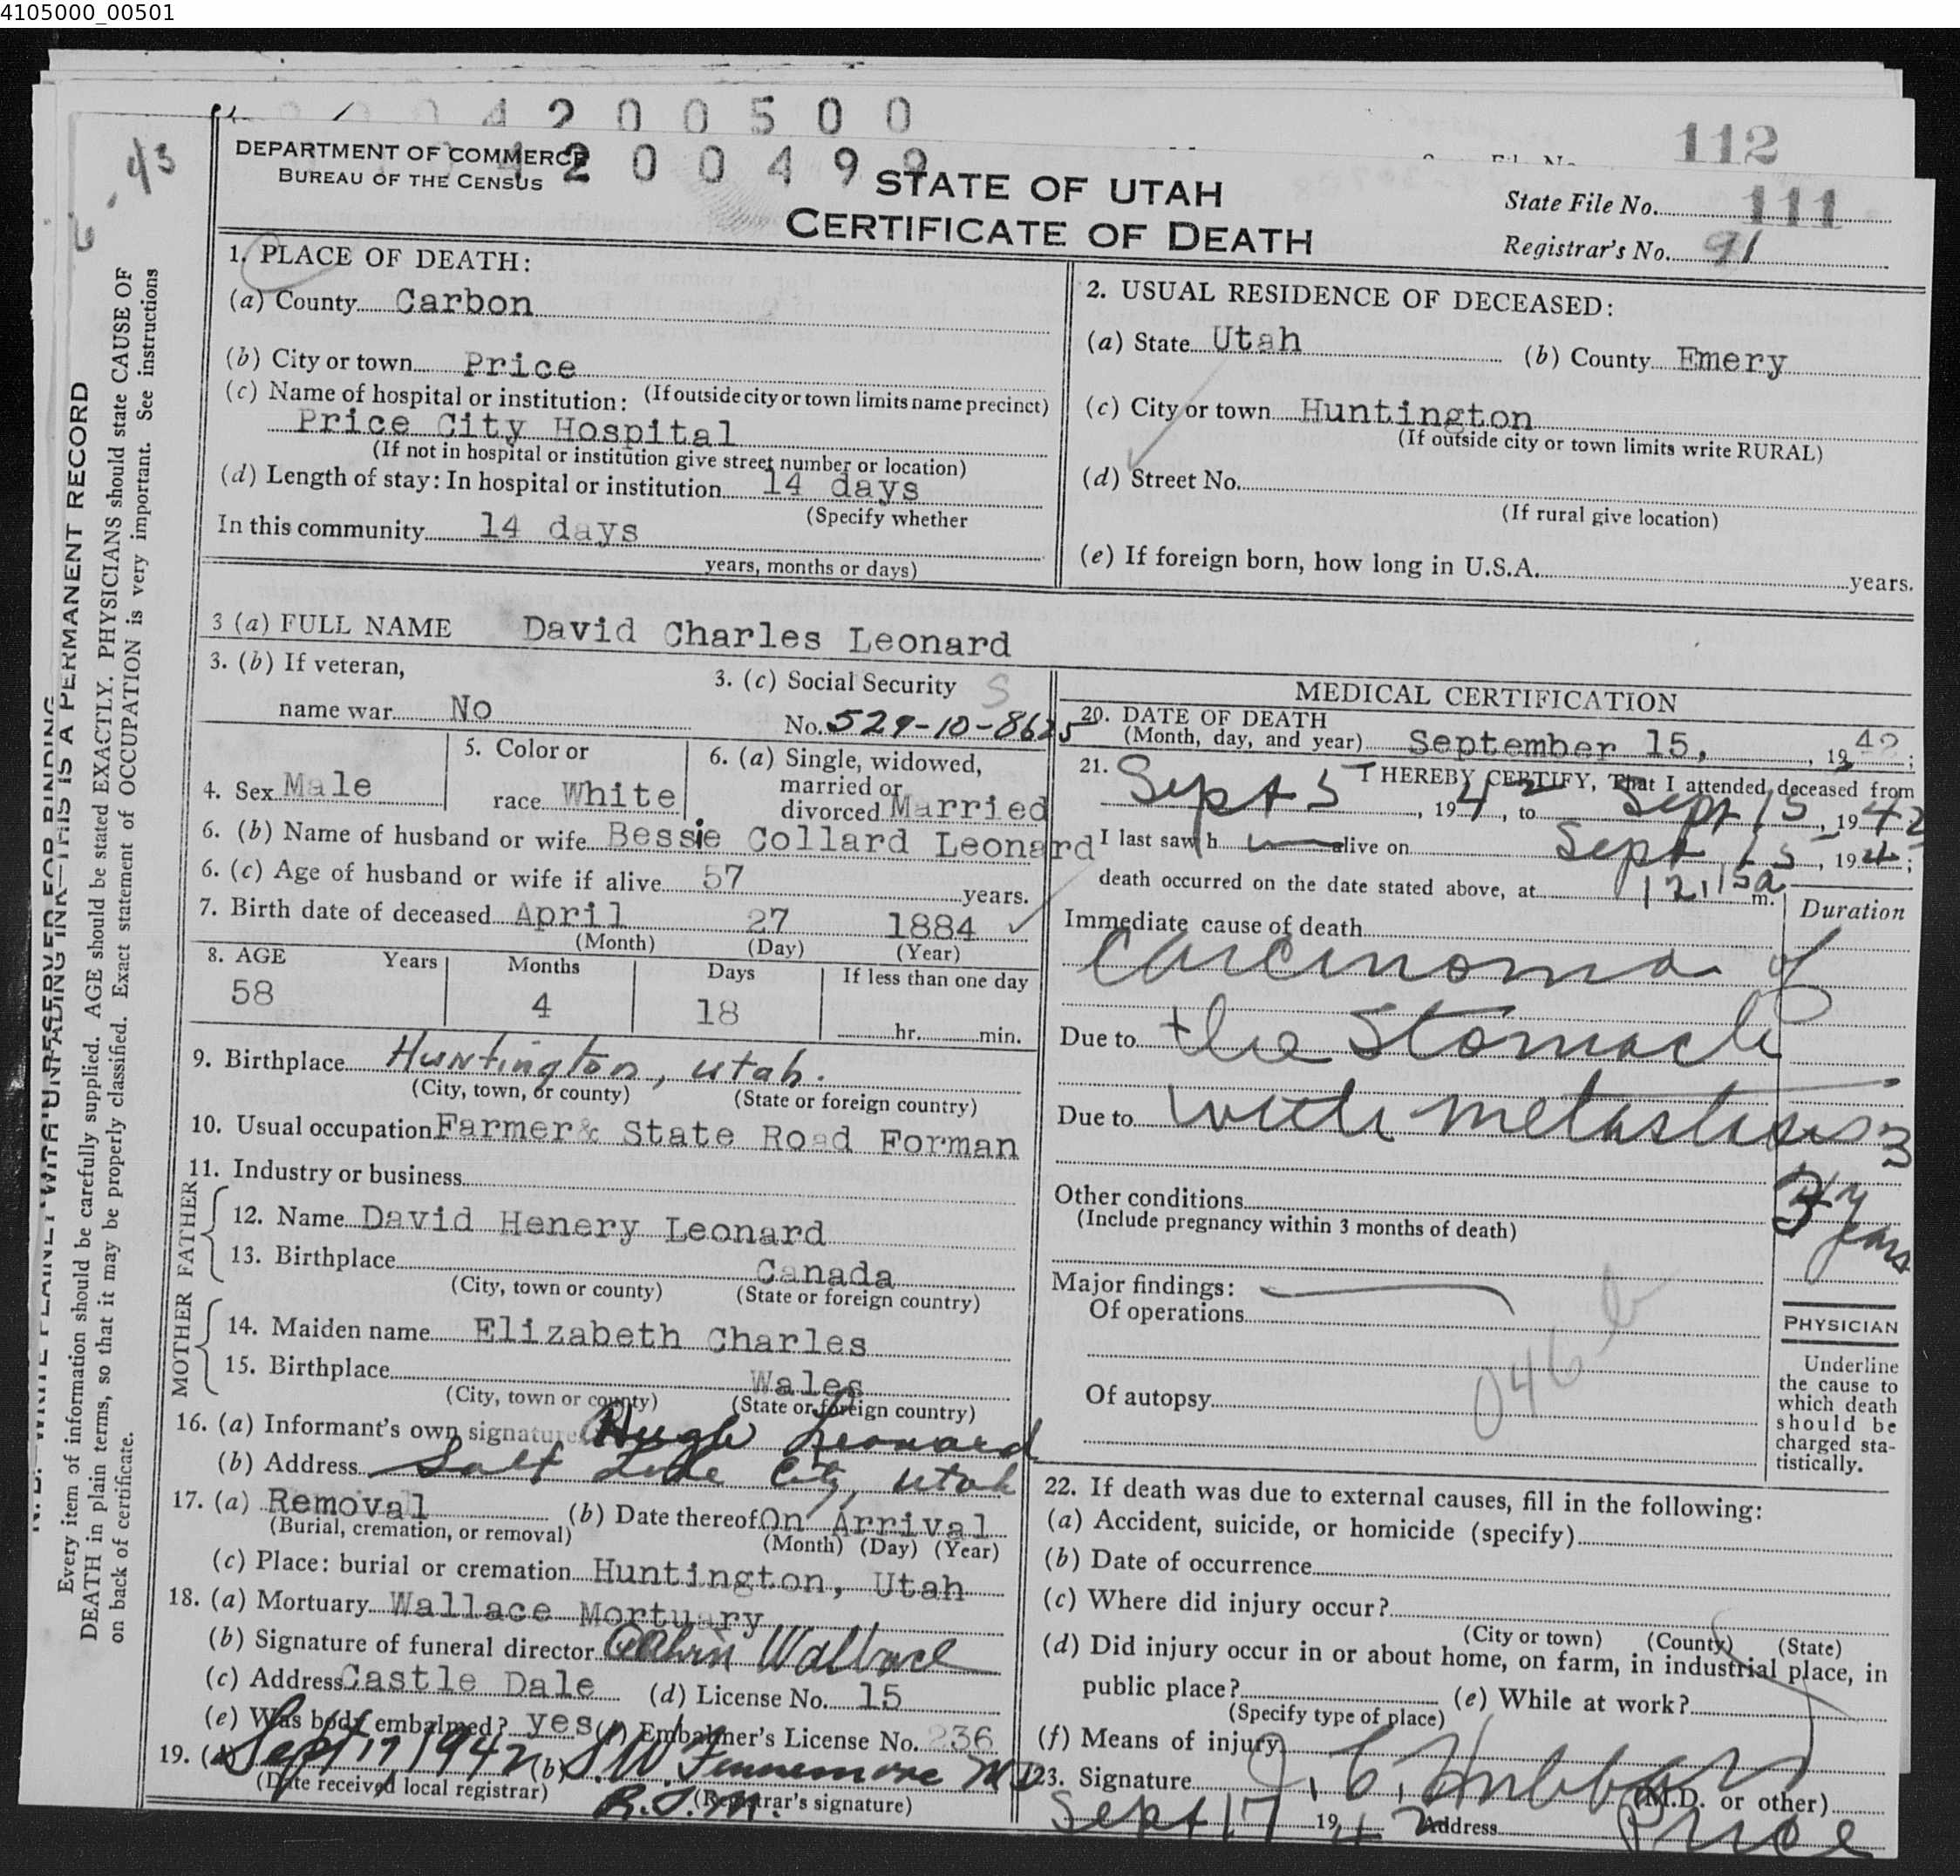 4105000_00501
4 2 0 0 5 0 0
112
4 2 0 0 4 9 9
43
DEPARTMENT OF COMMERCE
BUREAU OF THE CENSUS
STATE OF UTAH
CERTIFICATE OF DEATH
State File No. 111
Registrar's No. 91
1. PLACE OF DEATH:
(a) County Carbon
(b) City or town Price
(c) Name of hospital or institution: (If outside city or town limits name precinct)
Price City Hospital
(If not in hospital or institution give street number or location)
(d) Length of stay: In hospital or institution 14 days
(Specify whether
In this community 14 days
years, months or days)
2. USUAL RESIDENCE OF DECEASED:
(a) State Utah (b) County Emery
(c) City or town Huntington
(If outside city or town limits write RURAL)
(d) Street No.
(If rural give location)
(e) If foreign born, how long in U.S.A. years.
3 (a) FULL NAME David Charles Leonard
3. (b) If veteran,
name war No
3. (c) Social Security S
No. 529-10-8625
4. Sex Male
5. Color or
race White
6. (a) Single, widowed,
married or
divorced Married
6. (b) Name of husband or wife Bessie Collard Leonard
6. (c) Age of husband or wife if alive 57 years.
7. Birth date of deceased April 27 1884
(Month) (Day) (Year)
8. AGE Years Months Days If less than one day
58 4 18 hr. min.
9. Birthplace Huntington, Utah.
(City, town, or county) (State or foreign country)
10. Usual occupation Farmer & State Road Forman
11. Industry or business
FATHER
12. Name David Henery Leonard
13. Birthplace Canada
(City, town or county) (State or foreign country)
MOTHER
14. Maiden name Elizabeth Charles
15. Birthplace Wales
(City, town or county) (State or foreign country)
16. (a) Informant's own signature Hugh Leonard
(b) Address Salt Lake City, Utah
17. (a) Removal (b) Date thereof On Arrival
(Burial, cremation, or removal) (Month) (Day) (Year)
(c) Place: burial or cremation Huntington, Utah
18. (a) Mortuary Wallace Mortuary
(b) Signature of funeral director Wallace
(c) Address Castle Dale (d) License No. 15
(e) Was body embalmed? yes (f) Embalmer's License No. 236
19. (a) Sept 17 1942 (b) S.W. Fennemore MD
(Date received local registrar) (Registrar's signature)
MEDICAL CERTIFICATION
20. DATE OF DEATH
(Month, day, and year) September 15, 1942;
21. I HEREBY CERTIFY, That I attended deceased from
Sept 5, 1942, to Sept 15, 1942
I last saw h im alive on Sept 15, 194;
death occurred on the date stated above, at 12:15a m.
Immediate cause of death Duration
Carcinoma of
Due to the Stomach
Due to with metastases
3
years
Other conditions
(Include pregnancy within 3 months of death)
Major findings:
Of operations
046b
Of autopsy
PHYSICIAN
Underline
the cause to
which death
should be
charged sta-
tistically.
22. If death was due to external causes, fill in the following:
(a) Accident, suicide, or homicide (specify)
(b) Date of occurrence
(c) Where did injury occur?
(City or town) (County) (State)
(d) Did injury occur in or about home, on farm, in industrial place, in
public place? (e) While at work?
(Specify type of place)
(f) Means of injury
23. Signature J. C. Hubbard (M.D. or other)
Sept 17 1942 Address Price
N. B.—WRITE PLAINLY WITH UNFADING INK—THIS IS A PERMANENT RECORD
Every item of information should be carefully supplied. AGE should be stated EXACTLY. PHYSICIANS should state CAUSE OF
DEATH in plain terms, so that it may be properly classified. Exact statement of OCCUPATION is very important. See instructions
on back of certificate.